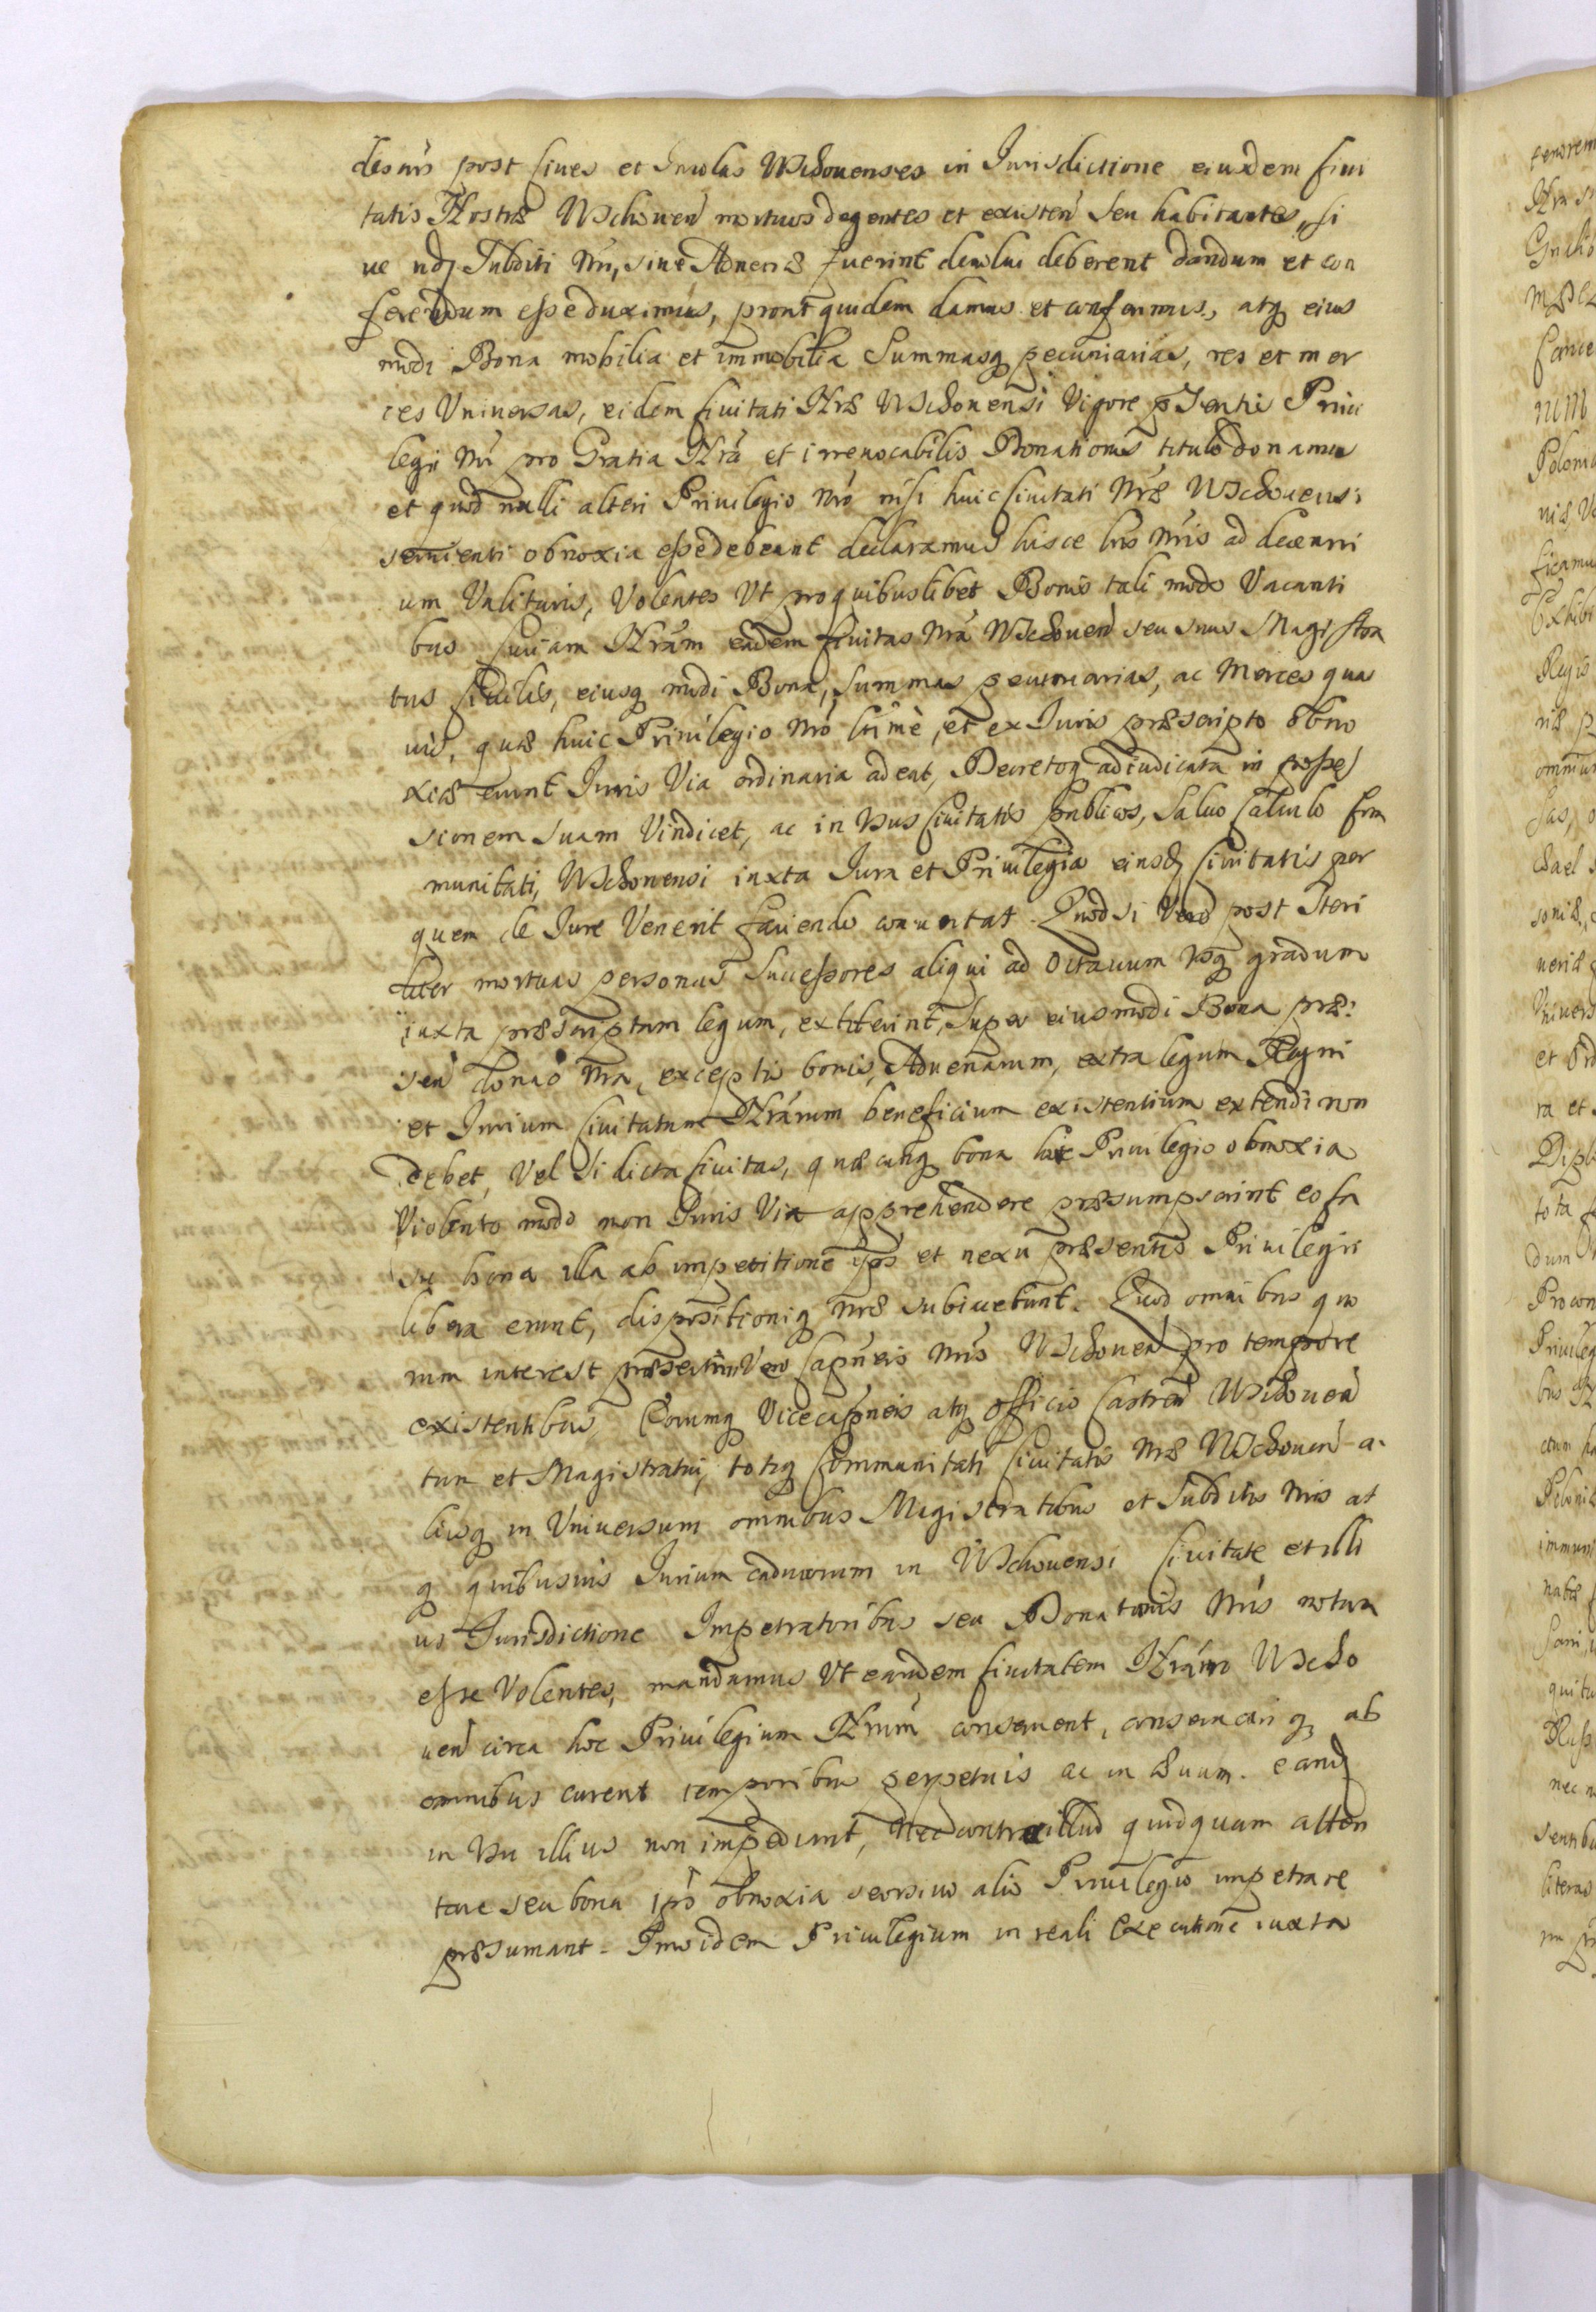 desuis post Ciues et Incolas Wschouenses in Iurisdictione eiusdem Ciui
tatis Nostræ Wschouen mortuos degentes et existen seu habitantes, si
ue ndz Subditi Nri, siue Aduenæ fuerint deuolui deberent dandum et con
ferendum esse duximus, prout quidem damus et conferimus, atq eius
modi Bona mobilia et immobilia Summasq pecuniarias, res et mer
ces Vniuersas, eidem Ciuitati Nræ Wschouensi Vigore pSentis Priui
legii Nri pro Gratia Nrá et irreuocabilis Donationis titulo donamus
et quod nulli alteri Priuilegio Nró nisi huic Ciuitati Nræ Wschouensi
seruienti obnoxia esse debeant declaramus hisce lris Nris ad decenni
um Valituris, Volentes Vt pro quibuslibet Bonis tali modo Vacanti
bus Curiam Nrám eadem Ciuitas Nrá Wschouen seu suus Magistra
tus Ciuilis, eiusq modi Bona, Summas pecuniarias, ac Merces quas
uis, quæ huic Priuilegio Nró ltime, et ex Iuris præscripto obno
xiæ erunt Iuris Via ordinaria adeat, Decretoq adiudicata in posses
sionem suam Vindicet, ac in Vsus Ciuitatis publicos, Saluo Calculo Com
munitati, Wschouensi iuxta Iura et Priuilegia eiusdz Ciuitatis per
quem de Iure Venerit faciendo conuertat. Quod si Vero post Steri
liter mortuas personas Successores aliqui ad Octauum Vsq gradum
iuxta præscriptum legum, extiterint, Super eiusmodi Bona præ:
sen donao Nra, exceptis bonis, Aduenarum, extra legum Regni
et Iurium Ciuitatum Nrárum beneficium existentium extendi non
debet, Vel Si dicta Ciuitas, quæcunq bona huic Priuilegio obnoxia
Violento modo non Iuris Via apprehendere præsumpserint eo fa
cto bona illa ab impetitione ips et nexu præsentis Priuilegii
libera erunt, dispositioniq Nræ subiacebunt. Quod omnibus quo
rum interest præsertim Vero Capneis Nris Wschouen pro tempore
existentibus, Eorumq Vicecapneis atq Officio Castren Wschouen
tum et Magistratui, totiq Communitati Ciuitatis Nræ Wschouen a
liisq in Vniuersum omnibus Magistratibus et Subditis Nris at
q quibusuis Iurium caducorum in Wschouensi Ciuitate et illi
us Iurisdictione Impetratoribus seu Donatariis Nris notum
esse Volentes, mandamus Vt eandem Ciuitatem Nrám Wscho
uen circa hoc Priuilegium Nrum conseruent, conseruariq ab
omnibus curent temporibus perpetuis ac in Æuum. eandz
in Vsu illius non impediant, Nec contra illud quidquam atten
tare seu bona ipso obnoxia seorsiuo alio Priuilegio impetrare
præsumant. Imo idem Priuilegium in reali Executione iuxta